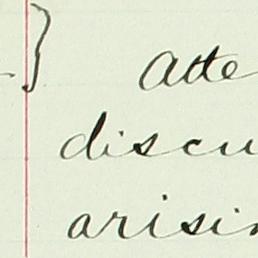 Atte
discu
arisin